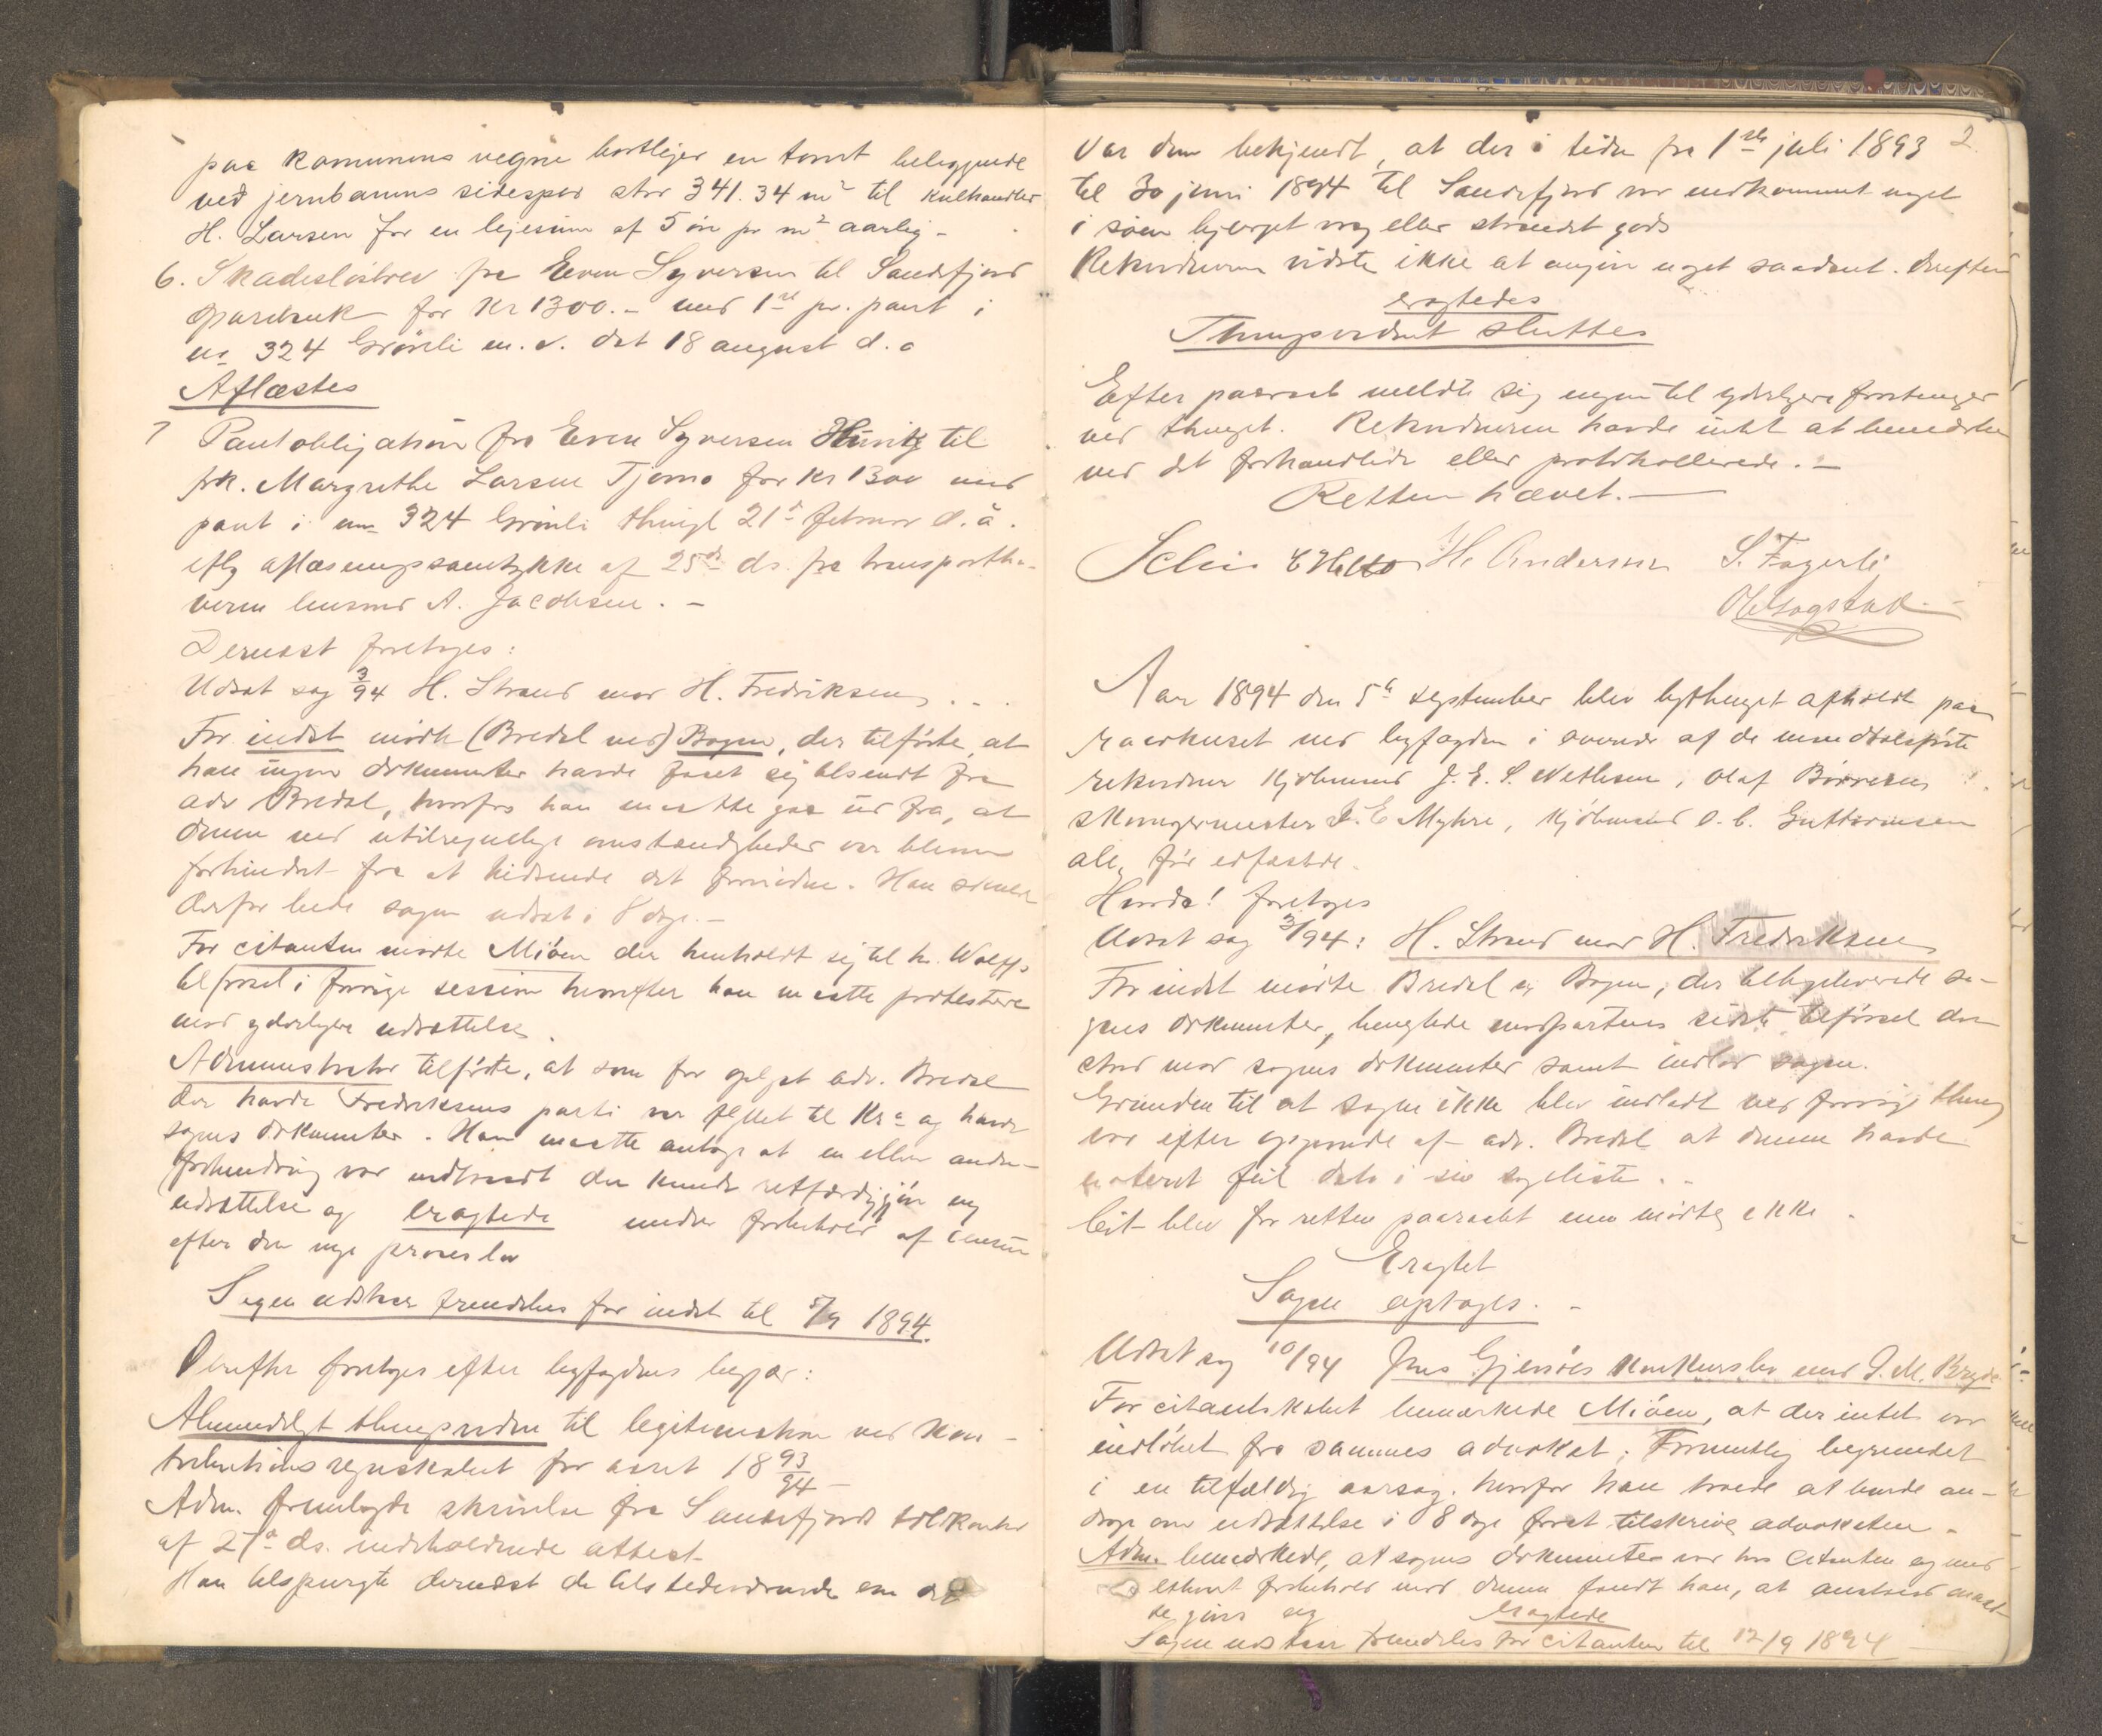 paa komunens vegne bortlejer en tomt beliggende
ved jernbanens sidespor stor 341.34 m² til kulhandler
H. Larsen for en lejesum af 5 øre pr m² aarlig -
6. Skadesløsbrev fra Even Syversen til Sandefjord
Sparebank for Kr 1300.- med 1ste pr. pant i
no 324 Grønli m.v. dat 18 august d.a
Aflæstes
7 Pantobligation fra Even Syversen til
frk. Margrethe Larsen Tjømø for Kr 1300 med
pant i no 324 Grønli thingl 21de februar d.å.
iflg aflæsningssamtykke af 25de ds. fra transportha-
veren lensmd A. Jacobsen. -
Dernæst foretoges:
Udsat sag 3/94 H. Strand mod H. Fredriksen
For indst mødte (Bredal ved) Bogen, der tilførte, at
han ingen dokumenter havde faaet sig tilsendt fra
adv Bredal, hvorfor han maatte gaa ud fra, at
denne ved utilregnelige omstændigheder var bleven
forhindret fra at hidsende det fornødne. Han
derfor bede sagen udsat i 8 dage. -
For citanten mødte Miøen der henholdt sig til hr. Wolffs
tilførsel i forrige session hvorefter han maatte protestere
mod yderligere udsættelse.
Administrator tilførte, at som for oplyst adv. Bredal
der havde Fredriksens parti var flyttet til Kr.a og havde
sagens dokumenter. Han maatte antage at en eller anden
forhindring var indtraadt der kunde retfærdiggjøre ny
udsættelse og eragtede under forbehold af censur
efter den nye proceslov
Sagen udstaar fremdeles for indst til 5/9 1894.
Derefter foretoges efter byfogdens begjær:
Almindeligt thingsvidne til legitimation ved Kon-
tributionsregnskabet for aaret 1893/94 -
Adm. fremlagde skrivelse fra Sandefjords toldkontor
af 27de ds. indeholdende attest
Han tilspurgte dernæst de tilstedeværende om det
2.
var dem bekjendt, at der i tiden fra 1ste juli 1893
til 30 juni 1894 til Sandefjord var indkommet noget
i søen bjerget vrag eller strandet gods
Retsvidnerne vidste ikke at angive noget saadant. Derefter
eragtedes
Thingsvidnet sluttes
Efter paaraab meldte sig ingen til yderligere forretninger
ved thinget. Retsvidnerne havde intet at bemærke
ved det forhandlede eller protokollerede. -
Retten hævet. -
H. Andersen S. Fagerli
Aar 1894 den 5te september blev bythinget afholdt paa
raadhuset ved byfogden i overvær af de meddomspligtige
retsvidner Kjøbmænd J. E. S. Wethesen, Olaf Børresen
skomagermester J. E Myhre, Kjøbmand O. C. Guttormsen
alle før edfæstede.
Hvorda! foretoges
Udsat sag 3/94: H. Strand mod H. Fredriksen
For indst mødte Bredal v. Bogen, der tilbageleverede sa-
gens dokumenter, benegtede modpartens sidste tilførsel den
strid mod sagens dokumenter samt indlod sagen.
Grunden til at sagen ikke blev indladt ved forrige thing
var efter opgivende af adv. Bredal at denne havde
noteret feil dato i sin sageliste. -
Cit blev for retten paaraabt men mødte ikke.
Eragtet
Sagen optages. -
Udsat sag 10/94 Jens Gjersøes Konkursbo mod J. M. Bryde
For citantskabet bemærkede Miøen, at der intet var
indløbet fra sammes advokat; Formentlig begrundet
i en tilfældig aarsag. hvorfor han troede at burde an-
drage om udsættelse i 8 dage for at tilskrive advokaten.
Adm. bemærkede, at sagens dokumenter var hos citanten og med
ethvert forbehold mod denne fandt han, at anstand maat-
te gives og eragtede
Sagen udstaar fremdeles for citanten til 12/9 1894